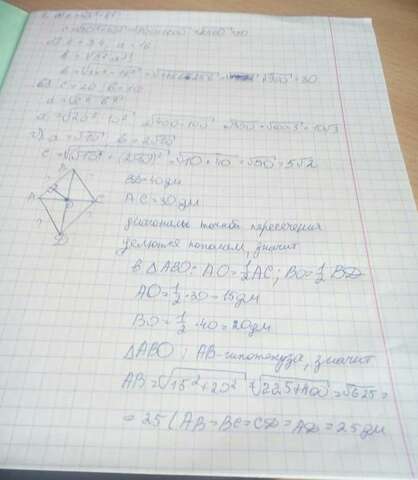 б) c = 34, a = 16
b = √c² - a²
в) c = 20, b = 10
a = √c² - b²
a = √20² - 10² √400 - 100 √300 = √100·3 = 10√3
г) a = √10 b = 2√10
c = √(√10)² + (2√10)² = √10 + 40 = √50 = 5√2
BD = 40дм
AC = 30дм
A
C
D
диагонали точкой пересечения
делятся пополам, значит
в ΔABO: AO = 1/2 AC; BO = 1/2 BD
AO = 1/2 · 30 = 15дм
BO = 1/2 · 40 = 20дм
ΔABO: AB - гипотенуза, значит
AB = √15² + 20² = √225 + 400 = √625 =
= 25 (AB = BC = CD = AD = 25дм